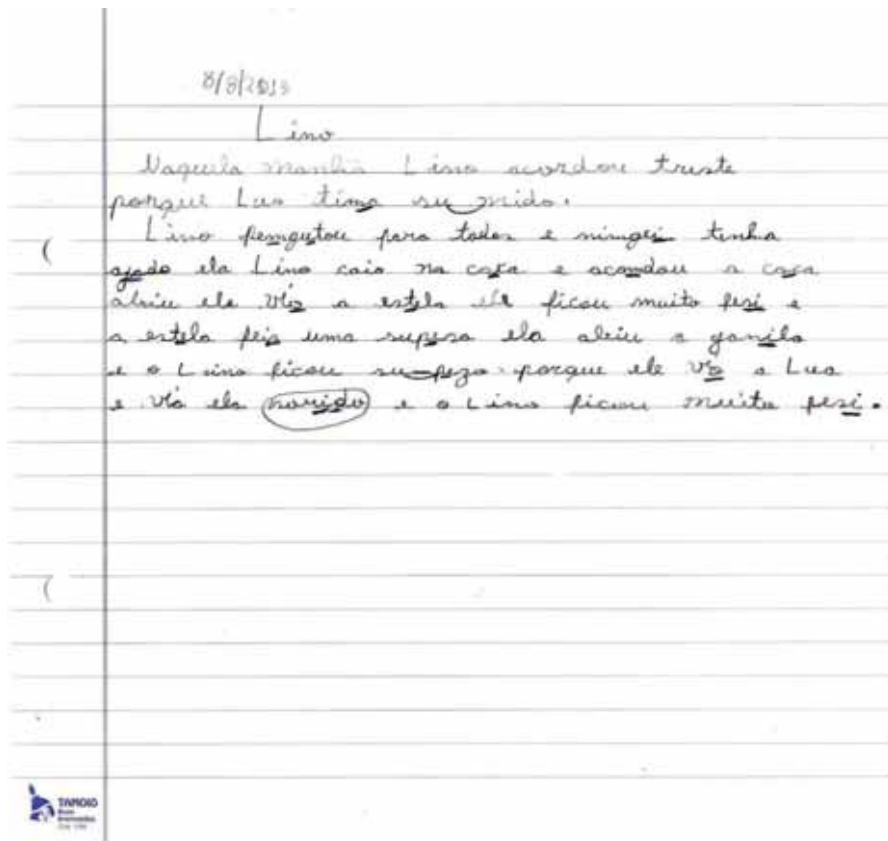 8/8/2013
Lino
Naquela manhã Lino acordou triste
porque Lua tima su mido.
Lino pemgutou para todos e nimgei tinha
ajado ela Lino caio na caxa e acomdou a caxa
abriu ele vio a estela ele ficou muito fesi e
a estela feis uma supesa ela abriu a ganila
e o Lino ficou su pezo porque ele vio a Lua
e vio ela e o Lino ficou muito fesi.
TAMOIO